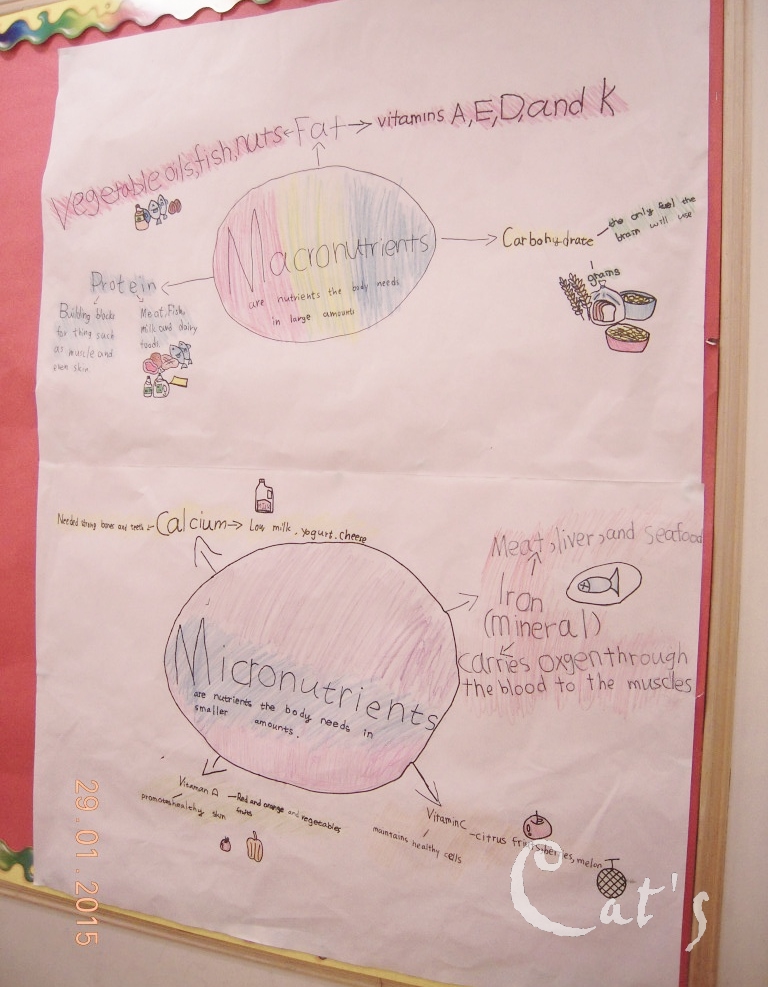 Vegetable oils, fish, nuts ← Fat → vitamins A, E, D, and K
Macronutrients
are nutrients the body needs
in large amounts
Carbohydrate
the only fuel the
brain will use
grains
Protein
Building blocks
for thing such
as muscle and
even skin
Meat, Fish,
milk and dairy
foods
Needed strong bones and teeth ← Calcium → Low milk, yogurt, cheese
Meat, liver, and seafood
Iron
(mineral)
carries oxgen through
the blood to the muscles
Micronutrients
are nutrients the body needs in
smaller amounts.
Vitaman A – Red and orange and vegetables
fruits
promotes healthy skin
Vitamin C – citrus fruits, berries, melon
maintains healthy cells
29.01.2015
Cat's